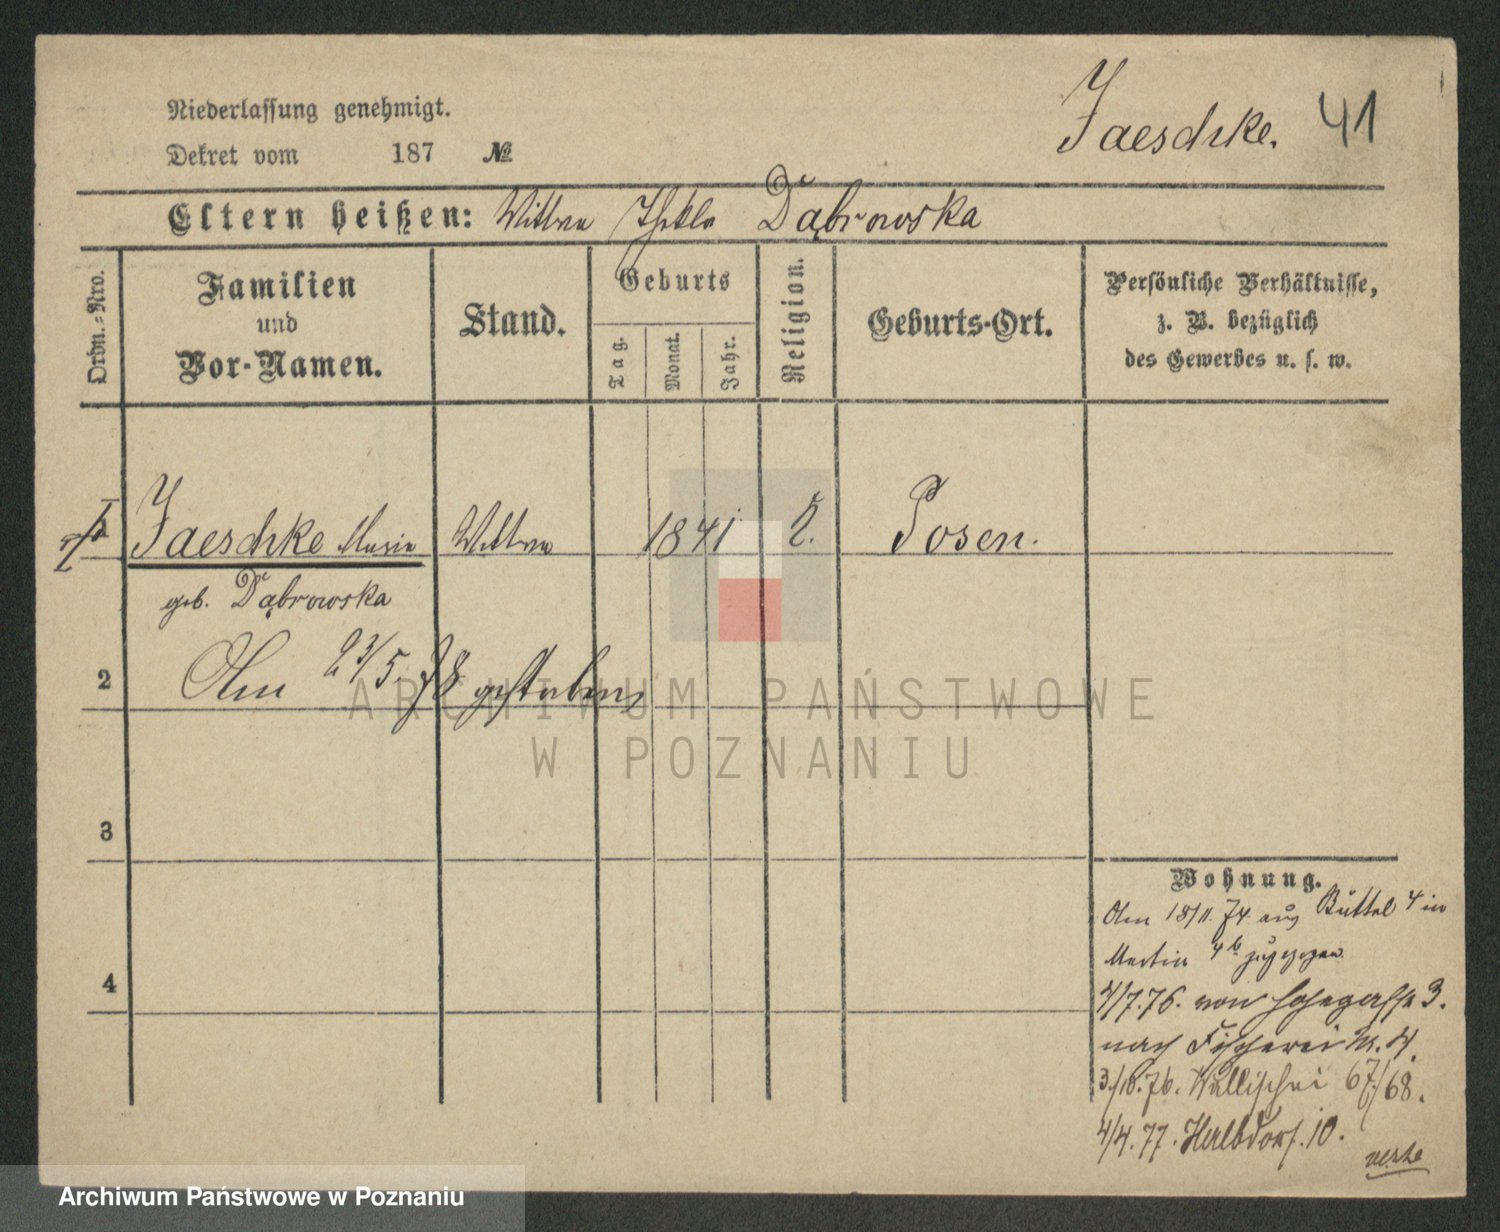 Niederlassung genehmigt.
Dekret vom 187 №
Jaeschke. 41
Eltern heißen: Wittwe Thekla Dąbrowska
Ordn.-Nro.
Familien
und
Vor-Namen.
Stand.
Geburts
Tag.
Monat.
Jahr.
Religion.
Geburts-Ort.
Persönliche Verhältnisse,
z. B. bezüglich
des Gewerbes u. s. w.
1 Jaeschke Maria Wittwe 1841 Posen.
geb. Dąbrowska
2 Am 23/5. 78 gestorben
3
4
Wohnung.
Am 18/11. 74. aus Büttel 4 in
Martin 4b zugezogen
4/7. 76. von 3.
nach Fischerei 4.
3./10. 76. Wallischei 67/68.
4/4. 77. Halbdorf. 10.
verte
ARCHIWUM PAŃSTWOWE
W POZNANIU
Archiwum Państwowe w Poznaniu